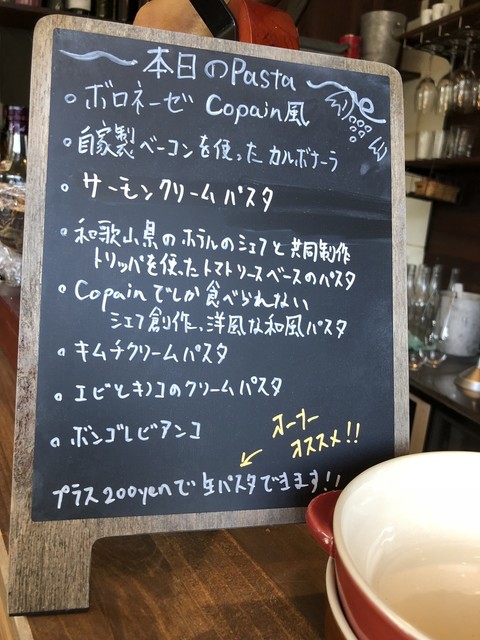 本日のPasta
○ボロネーゼ Copain風
○自家製ベーコンを使ったカルボナーラ
○サーモンクリームパスタ
○和歌山県のホテルのシェフと共同制作
トリッパを使ったトマトソースベースのパスタ
○Copainでしか食べられない
シェフ創作、洋風な和風パスタ
○キムチクリームパスタ
○エビとキノコのクリームパスタ
○ボンゴレビアンコ
オーナー
オススメ!!
プラス200yenで生パスタできます!!